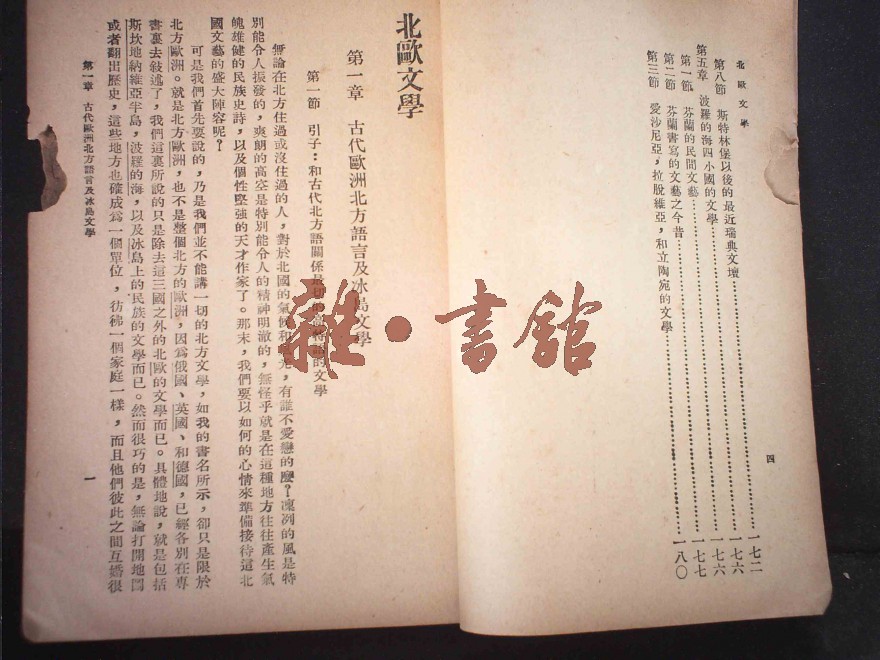 北歐文學
第八節　斯特林堡以後的最近瑞典文壇……一七二
第五章　波羅的海四小國的文學……一七六
第一節　芬蘭的民間文藝……一七六
第二節　芬蘭書寫的文藝之今昔……一七七
第三節　愛沙尼亞，拉脫維亞，和立陶宛的文學……一八〇
四
北歐文學
第一章　古代歐洲北方語言及冰島文學
第一節　引子：和古代北方語關係最切的
的文學
無論在北方住過或沒住過的人，對於北國的氣候和光，有誰不愛戀的麼？凜冽的風是特
別能令人振發的，爽朗的高空是特別能令人的精神明澈的，無怪乎就是在這種地方往往產生氣
魄雄健的民族史詩，以及個性堅強的天才作家了。那末，我們要以如何的心情來準備接待這北
國文藝的盛大陣容呢？
可是我們首先要說的，乃是我們並不能講一切的北方文學，如我的書名所示，卻只是限於
北方歐洲。就是北方歐洲，也不是整個北方的歐洲，因爲俄國、英國、和德國，已經各別在專
書裏去敍述了，我們這裏所說的只是除去這三國之外的北歐的文學而已。具體地說，就是包括
斯坎地納維亞半島，波羅的海，以及冰島上的民族的文學而已。然而很巧的是，無論打開地圖
或者翻出歷史，這些地方也確成爲一個單位，彷彿一個家庭一樣，而且他們彼此之間互婚很
第一章　古代歐洲北方語言及冰島文學
一
雜·書館